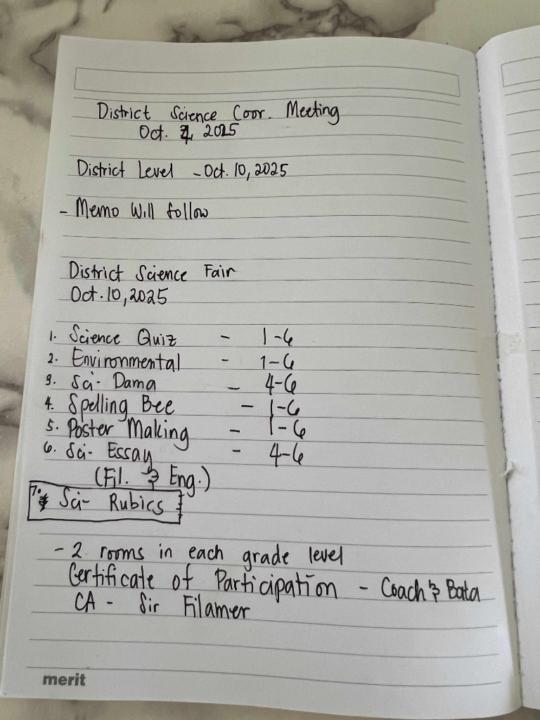 District Science Coor. Meeting
Oct. 2025
District Level - Oct. 10, 2025
- Memo Will follow
District Science Fair
Oct. 10, 2025
1. Science Quiz - 1-6
2. Environmental - 1-6
3. Sci- Dama - 4-6
4. Spelling Bee - 1-6
5. Poster Making - 1-6
6. Sci- Essay - 4-6
(Fil. & Eng.)
7. Sci- Rubics
- 2 rooms in each grade level
Certificate of Participation - Coach & Bata
CA - Sir Filamer
merit